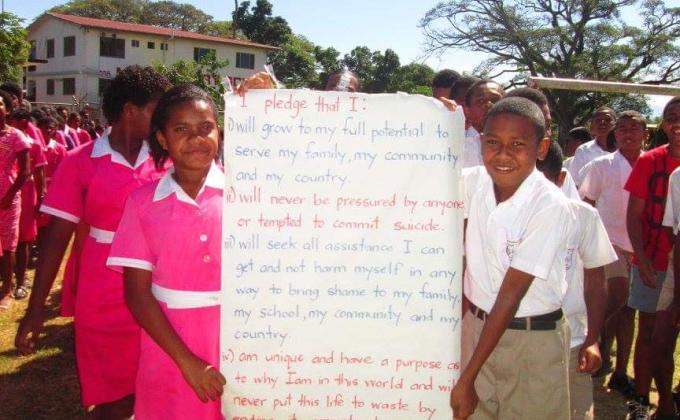 I pledge that I:
i) will grow to my full potential to
serve my family, my community
and my country.
ii) will never be pressured by anyone
or tempted to commit suicide.
iii) will seek all assistance I can
get and not harm myself in any
way to bring shame to my family,
my school, my community and my
country.
iv) am unique and have a purpose as
to why I am in this world and will
never put this life to waste by